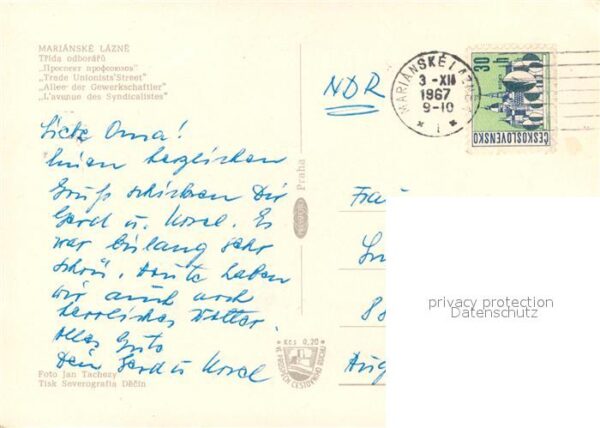 MARIÁNSKÉ LÁZNĚ
Třída odborářů
„Проспект профсоюзов"
„Trade Unionists'Street"
„Allee der Gewerkschaftler"
„L'avenue des Syndicalistes"
NDR
MARIÁNSKÉ LÁZNĚ
3-XII
1967
9-10
1
30 h
ČESKOSLOVENSKO
Liebe Oma!
Einen herzlichen
Gruß schicken Dir
Gerd u. Korel. Es
war bislang sehr
schön. Heute haben
wir auch noch
herrliches Wetter.
Alles Gute
Dein Gerd u Korel
Praha
Frau
88
privacy protection
Datenschutz
Kčs 0,20
VE PROSPĚCH CESTOVNÍHO RUCHU
Foto Jan Tachezy
Tisk Severografia Děčín